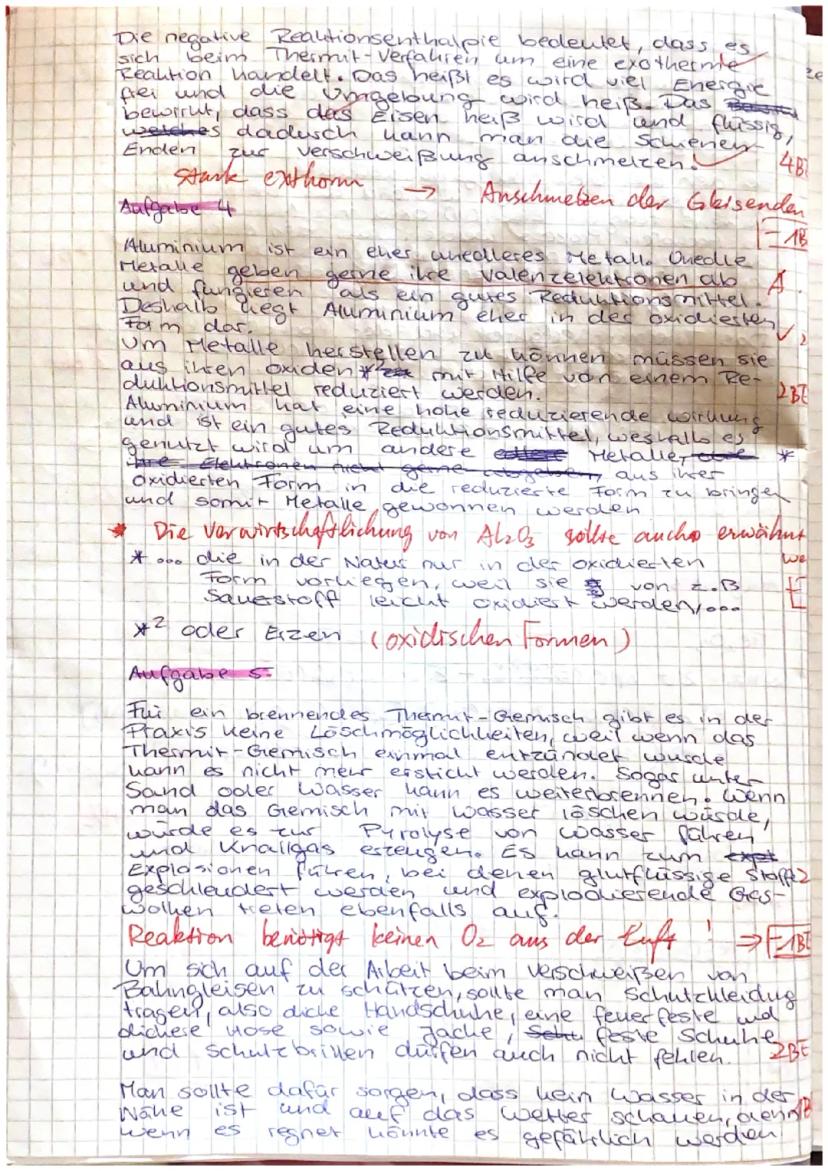 Die negative Reaktionsenthalpie bedeutet, dass es
sich beim Thermit-Verfahren um eine exotherme
Reaktion handelt. Das heißt es wird viel Energie
frei und die Umgebung wird heiß. Das
bewirkt, dass das Eisen heiß wird und flüssig,
dadurch kann man die Schienen-
Enden zur Verschweißung anschmelzen. 4BE
stark exthorm → Anschmelzen der Gleisenden
-1B
Aufgabe 4
Aluminium ist ein eher unedleres Metall. Unedle
Metalle geben gerne ihre Valenzelektronen ab A.
und fungieren als ein gutes Reduktionsmittel.
Deshalb liegt Aluminium eher in der oxidierten
Form dar.
Um Metalle herstellen zu können müssen sie
aus ihren oxiden *² mit Hilfe von einem Re-
duktionsmittel reduziert werden. 2BE
Aluminium hat eine hohe reduzierende wirkung
und ist ein gutes Reduktionsmittel, weshalb es
genutzt wird um andere Metalle, *
ihre Elektronen nicht gerne abgeben, aus ihrer
oxidierten Form in die reduzierte Form zu bringen
und somit Metalle gewonnen werden
* Die Verwirtschaftlichung von Al₂O₃ sollte auch erwähnt
we
* ... die in der Natur nur in der oxidierten
Form vorliegen, weil sie von z.B
Sauerstoff leicht oxidiert werden, ...
*² oder Erzen (oxidischen Formen)
Aufgabe 5
Für ein brennendes Thermit-Gemisch gibt es in der
Praxis keine Löschmöglichkeiten, weil wenn das
Thermit-Gemisch einmal entzündet wurde
kann es nicht mehr erstickt werden. Sogar unter
Sand oder Wasser kann es weiterbrennen. Wenn
man das Gemisch mit Wasser löschen würde,
würde es zur Pyrolyse von Wasser führen
und Knallgas erzeugen. Es kann zum
Explosionen führen, bei denen glutflüssige Stoffe
geschleudert werden und explodierende Gas-
wolken treten ebenfalls auf.
Reaktion benötigt keinen O₂ aus der Luft ! ⇒ -1BE
Um sich auf der Arbeit beim verschweißen von
Bahngleisen zu schützen, sollte man Schutzkleidung
tragen, also dicke Handschuhe, eine feuerfeste und
dickere Hose sowie Jacke, feste Schuhe
und Schutzbrillen dürfen auch nicht fehlen. 2BE
Man sollte dafür sorgen, dass kein Wasser in der
Nähe ist und auf das Wetter schauen, denn
wenn es regnet könnte es gefährlich werden